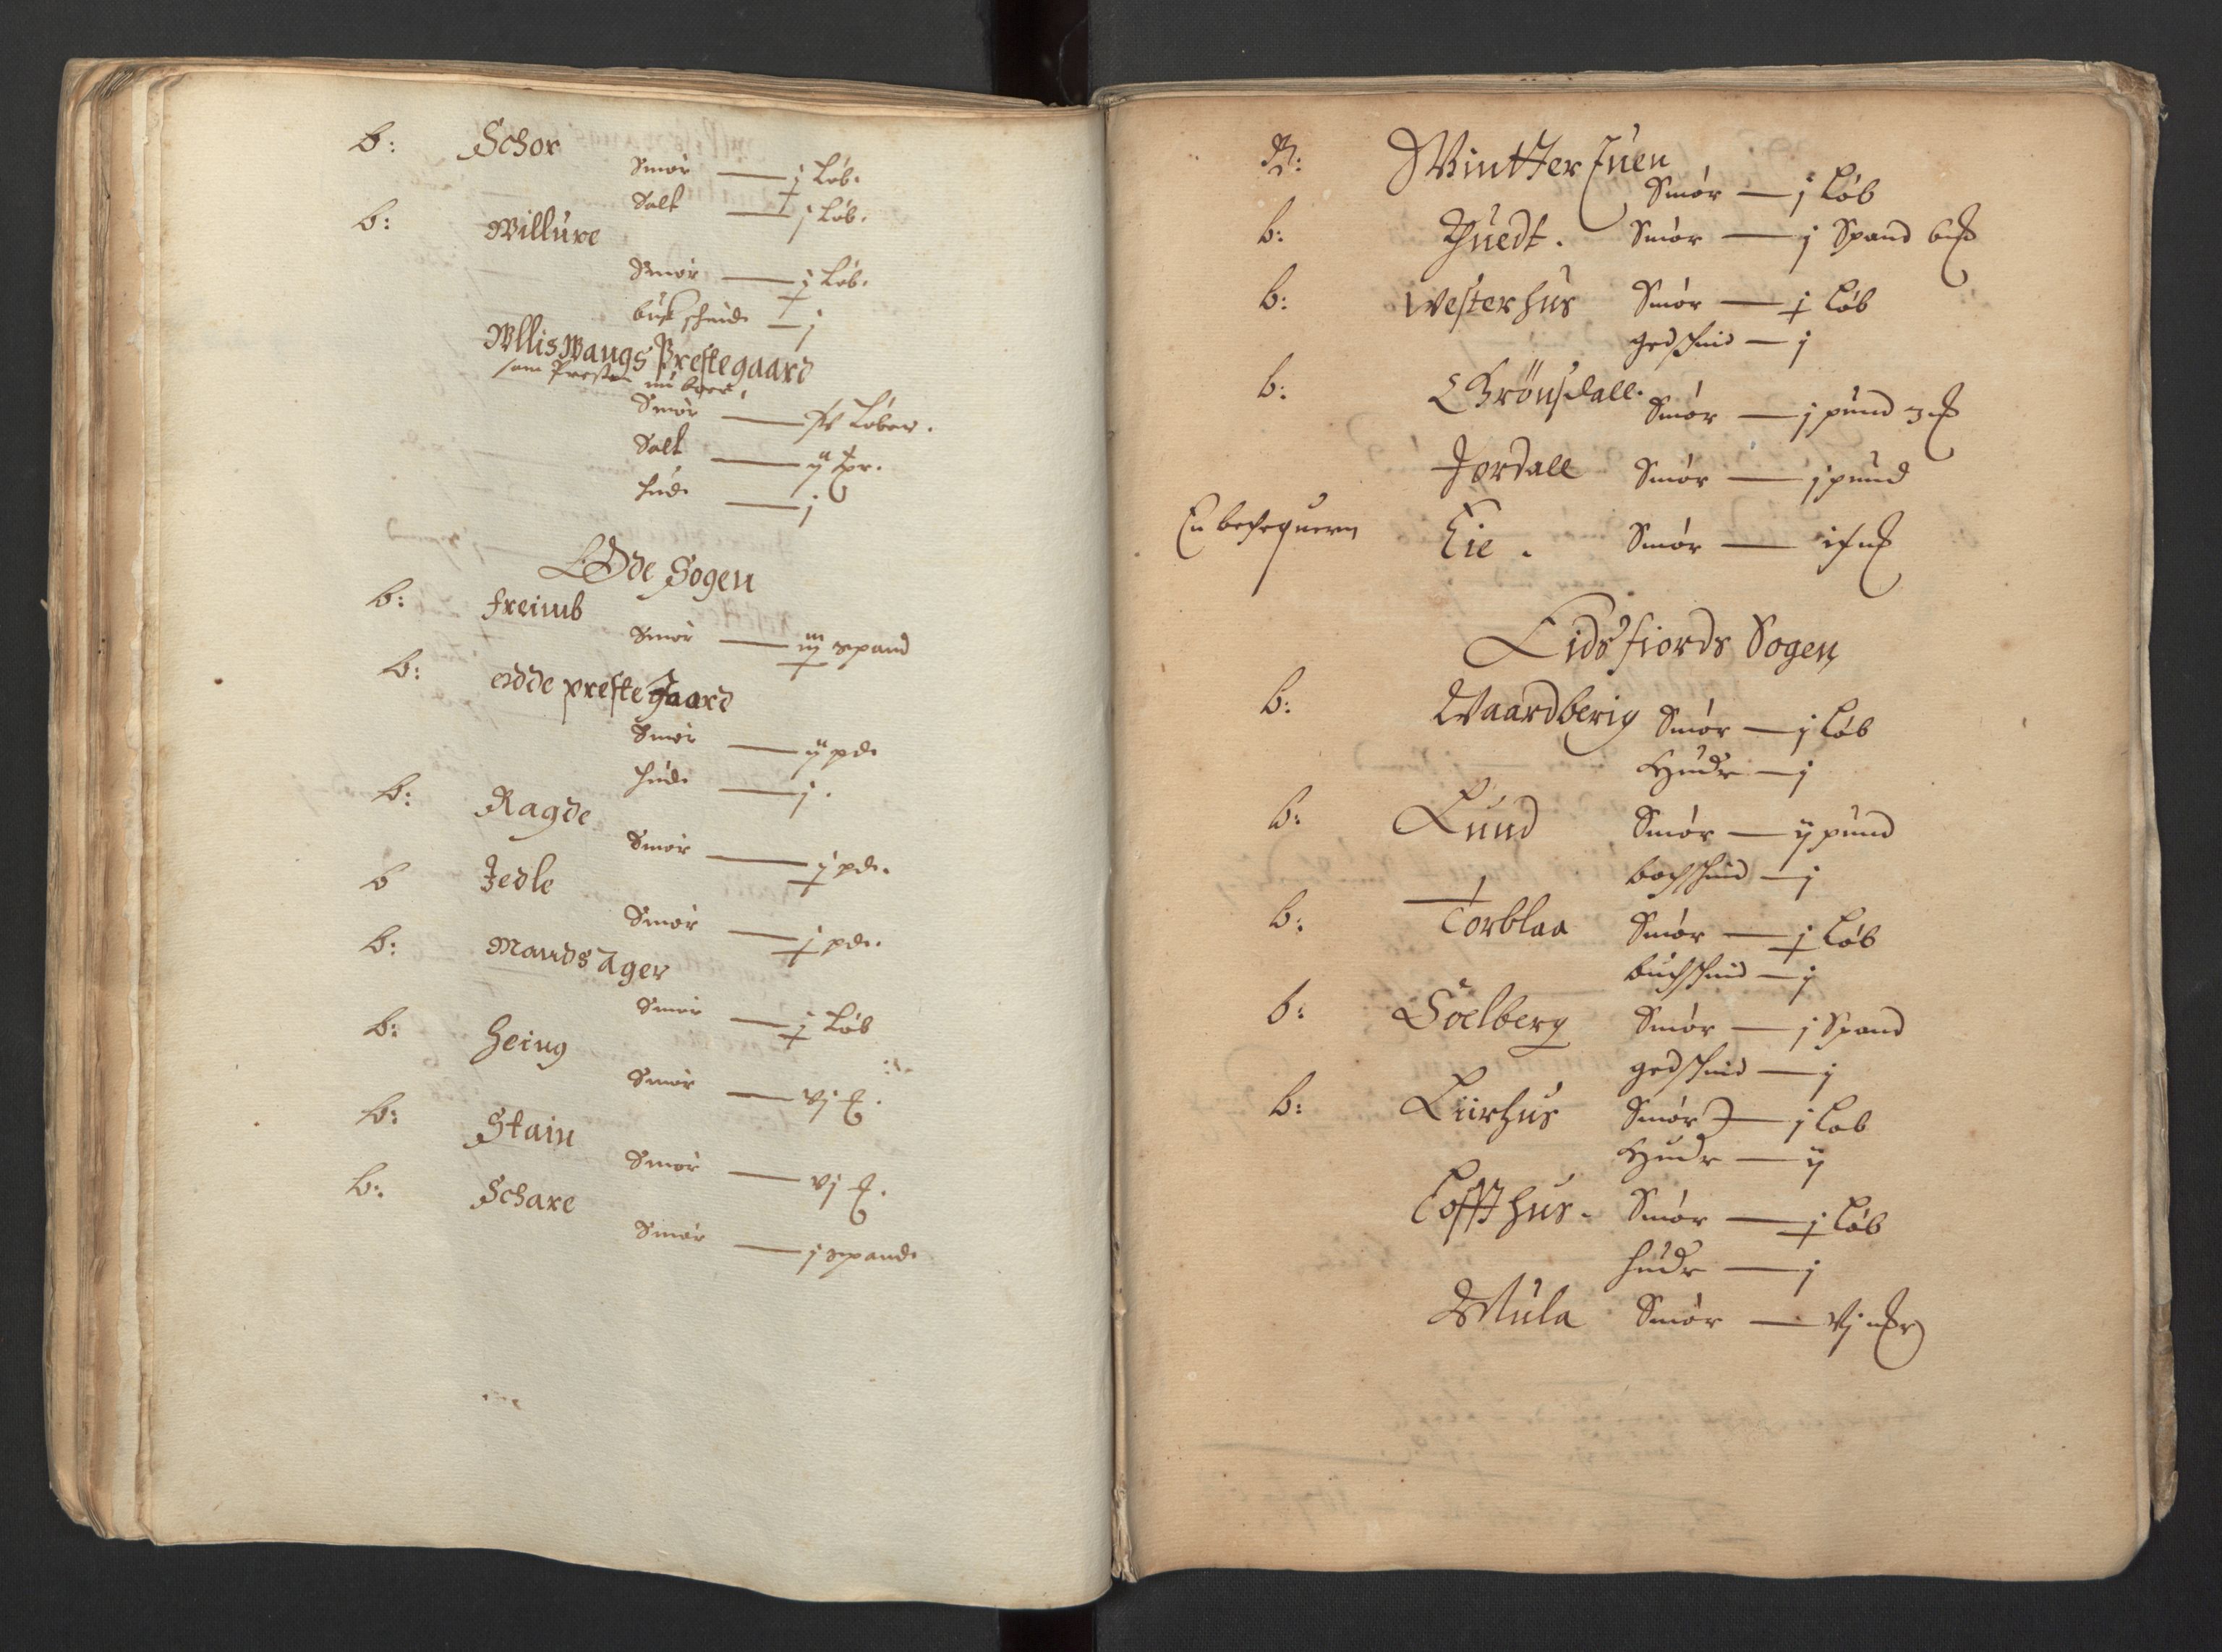 b: Schor
Smør — j Løb.
Salt — j Løb.
b: Willure
Smør — j Løb.
buk schind — j
Wllis Wangs Prestegaard
som Presten nu boer,
Smør — Løber.
Salt — ij
hud — j
Odde Sogen
b: freimb
Smør — iij spand
b: odde preste gaard
Smør — ij pd.
hud — j.
b: Ragde
Smør — j pd.
b Jedle
Smør — j pd.
b: Mands Ager
Smør — j Løb
b: Heing
Smør — vj
b: Stain
Smør — vj
b: Schare
Smør — j spand
Wintter Tuen
Smør — j Løb
b: Tuedt. Smør — j Spand 6
b: Westerhus Smør — j Løb
gedschind — j
b: Grønsdall. Smør — j pund 3
Jordall Smør — j pund
Eie. Smør —
Eidsfiords Sogen
b: Waardberig Smør — j Løb
Huder — j
b: Lund Smør — ij pund
bochschind — j
b: Torblaa Smør — j Løb
buchschind — j
b: Søelberg Smør — j Spand
gedschind — j
b: Liirhus Smør — j Løb
Huder — ij
Toffthus. Smør — j Løb
huder — j
Mula Smør — vj